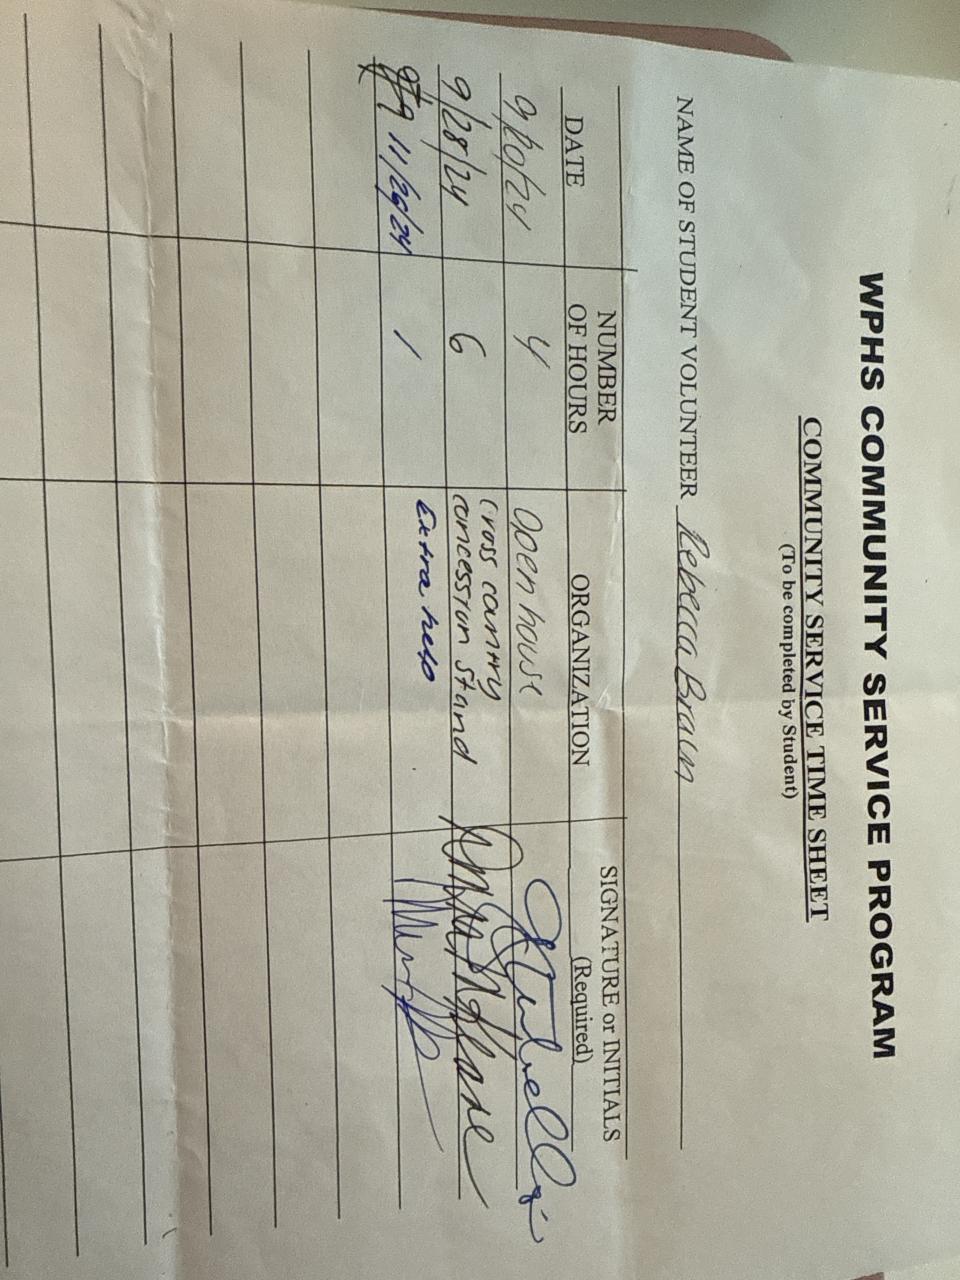 WPHS COMMUNITY SERVICE PROGRAM
COMMUNITY SERVICE TIME SHEET
(To be completed by Student)
NAME OF STUDENT VOLUNTEER Rebecca Braun
DATE NUMBER OF HOURS ORGANIZATION SIGNATURE or INITIALS (Required)
9/20/24 4 Open house
9/28/24 6 Cross cantry concession stand
11/26/24 1 Extra help